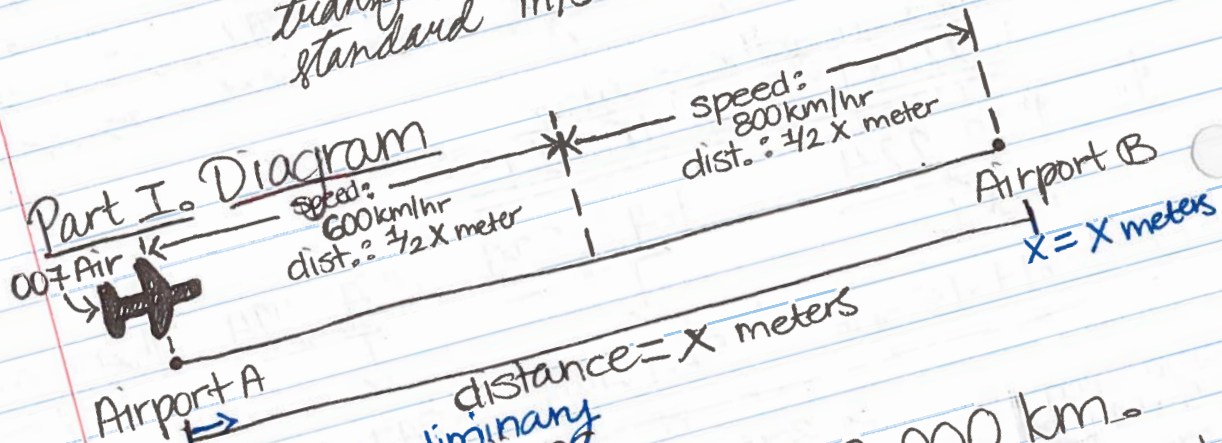 standard
Part I. Diagram
speed:
600km/hr
dist.: 1/2 X meter
speed:
800km/hr
dist.: 1/2 X meter
007 Air
Airport B
X = X meters
Airport A
distance = X meters
km.